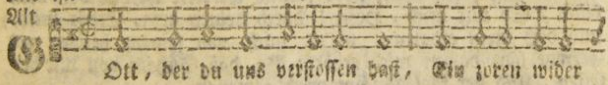 Alt
GOtt, der du uns verstossen hast, Ein zoren wider